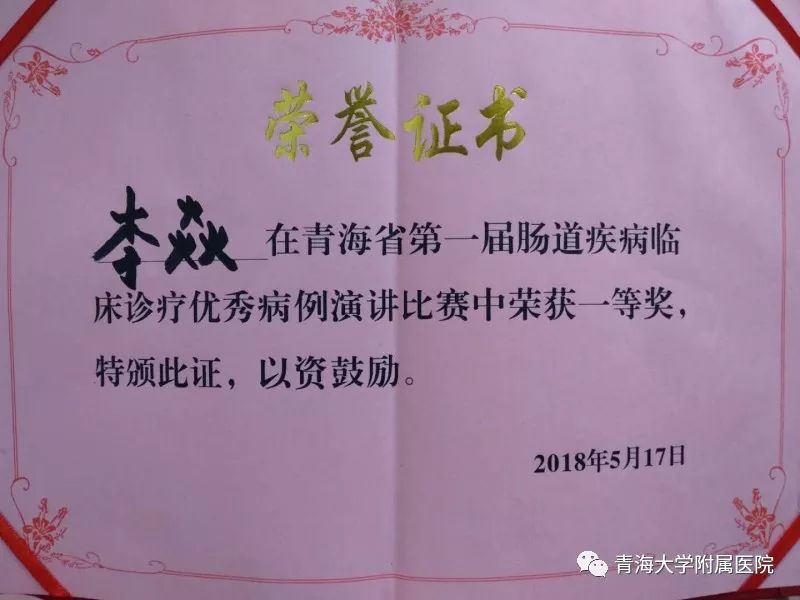 荣誉证书
李焱在青海省第一届肠道疾病临
床诊疗优秀病例演讲比赛中荣获一等奖，
特颁此证，以资鼓励。
2018年5月17日
青海大学附属医院